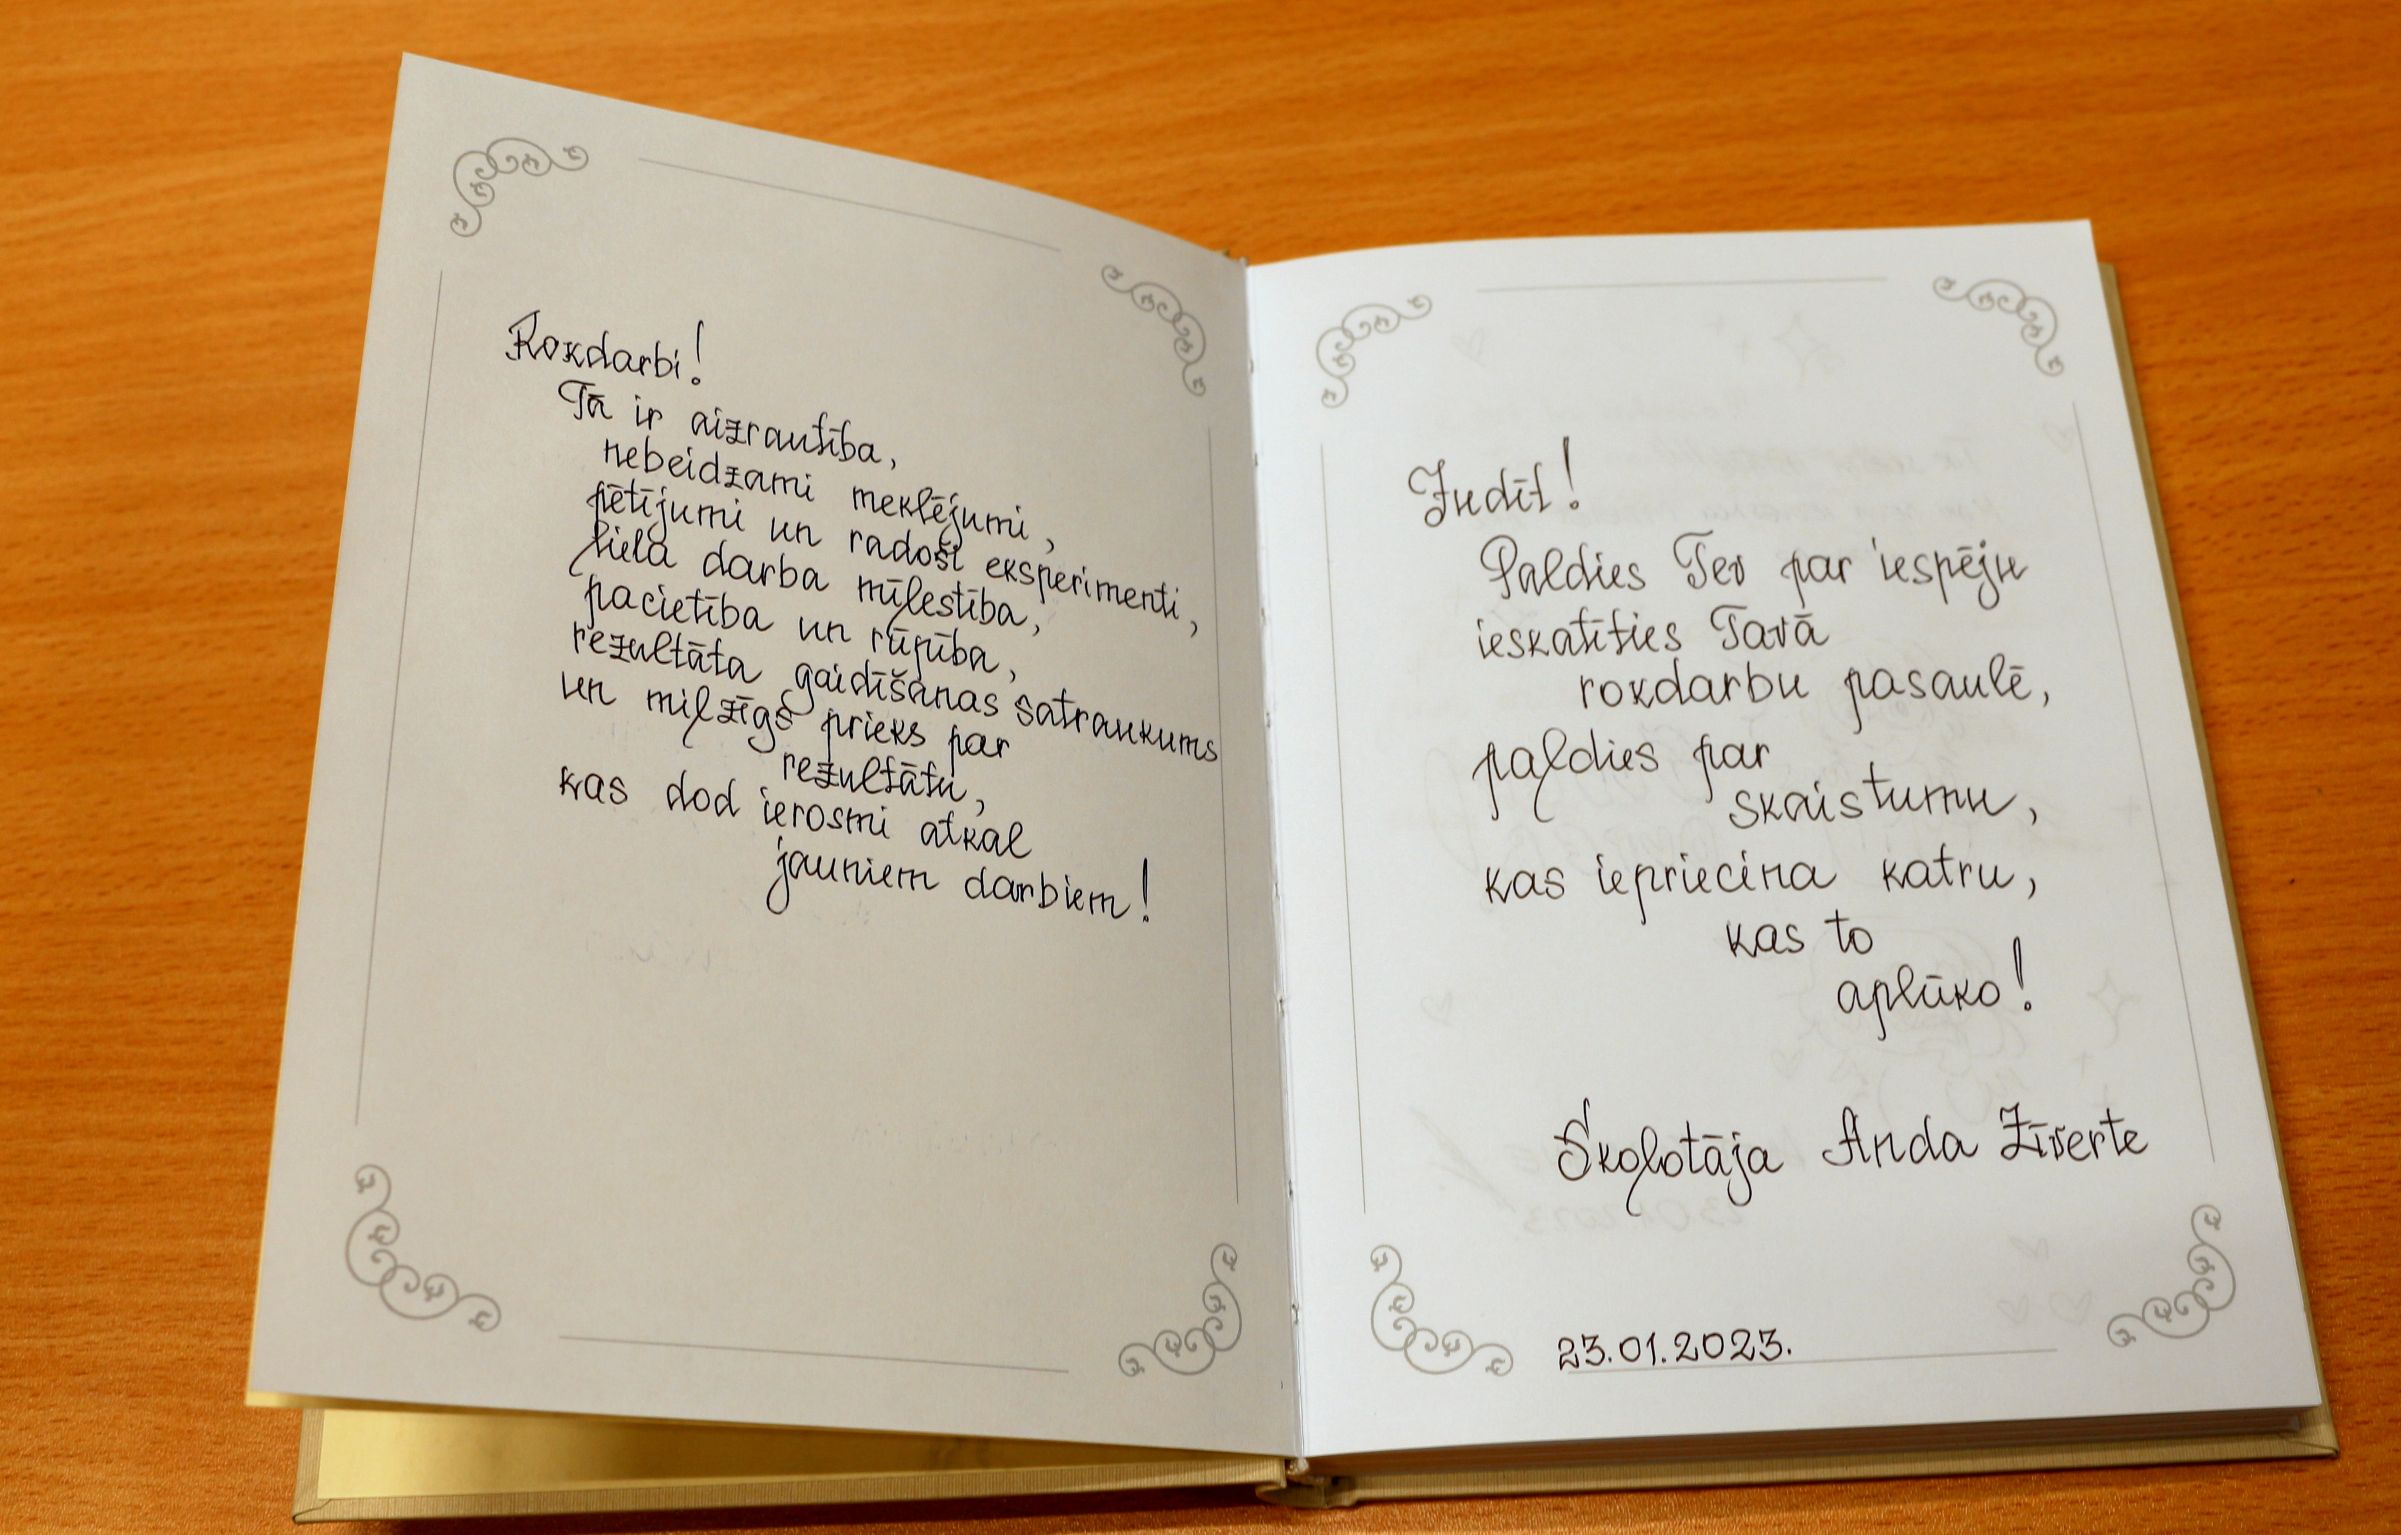 Rokdarbi!
Tā ir aizrautība,
nebeidzami meklējumi,
pētījumi un radoši eksperimenti,
liela darba mīlestība,
pacietība un rūpība,
rezultāta gaidīšanas satraukums
un milzīgs prieks par
rezultātu,
kas dod ierosmi atkal
jauniem darbiem!
Judīt!
Paldies Tev par iespēju
ieskatīties Tavā
rokdarbu pasaulē,
paldies par
skaistumu,
kas iepriecina katru,
kas to
aplūko!
Skolotāja Anda Zīverte
23.01.2023.